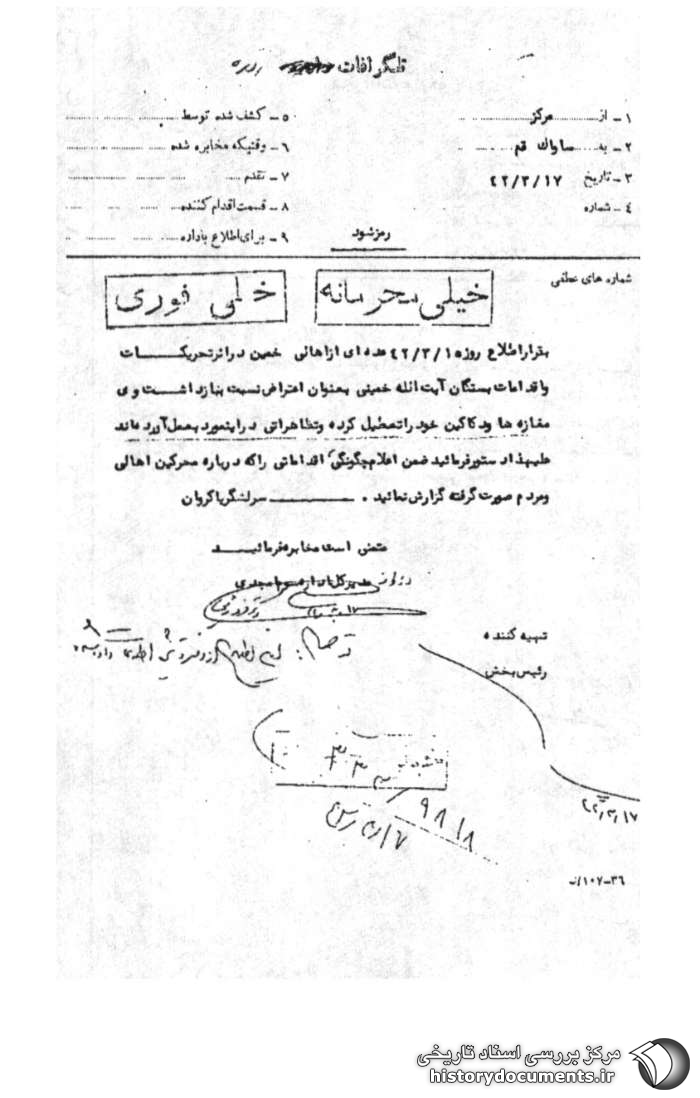 تلگرافات
۱ـ از مرکز
۲ـ به ساواک قم
۳ـ تاریخ ۴۲/۳/۱۷
۴ـ شماره
۵ـ کشف شده توسط
۶ـ وقتیکه مخابره شده
۷ـ تقدم
۸ـ قسمت اقدام کننده
۹ـ برای اطلاع باداره
رمز شود
شماره های عطفی
خیلی محرمانه
خیلی فوری
بقرار اطلاع روز ۴۲/۳/۱۵ عده ای از اهالی خمین در اثر تحریکات
و اقدامات بستگان آیت الله خمینی بعنوان اعتراض نسبت ببازداشت وی
مغازه ها و دکاکین خود را تعطیل کرده و تظاهراتی در اینمورد بعمل آورده اند
علیهذا دستور فرمائید ضمن اعلام چگونگی اقداماتی را که درباره محرکین اهالی
و مردم صورت گرفته گزارش نمائید . سرلشگر پاکروان
متمنی است مخابره فرمائید
مدیر کل اداره سوم امجدی
تهیه کننده
رئیس بخش
۹۸۱۸
۴۲/۳/۱۷
۳۶-۱۰۷/ف
مرکز بررسی اسناد تاریخی
historydocuments.ir